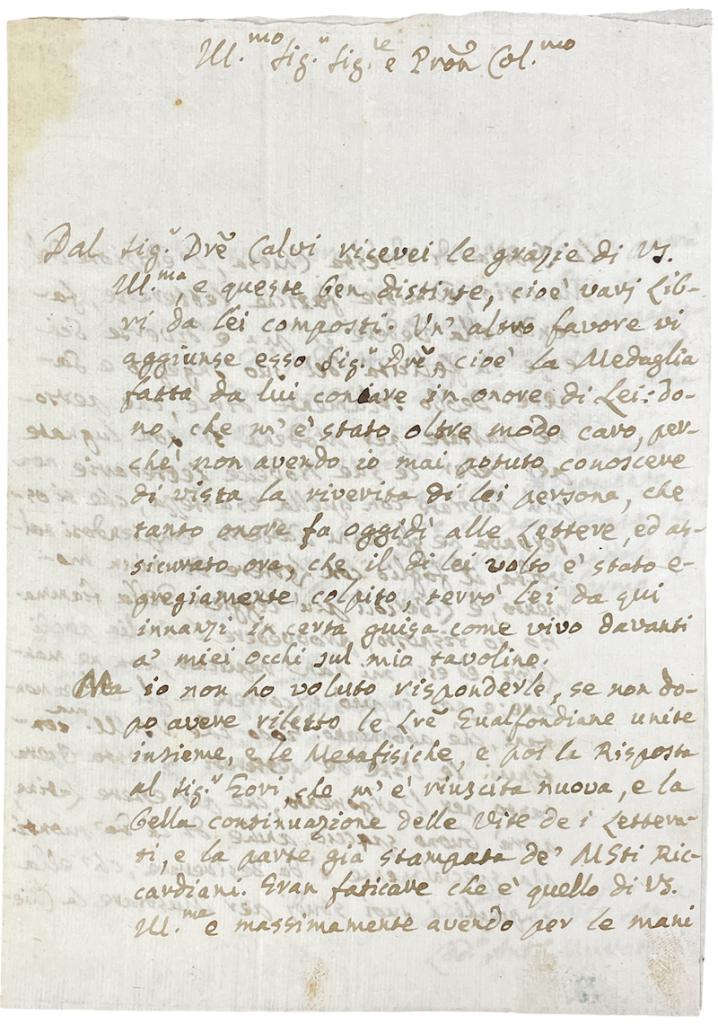 Ill.mo Sig.r Sig.re e Pron Col.mo
Dal Sig.r Dre Calvi ricevei le grazie di VS.
Ill.ma, e queste ben distinte, cioè varj Lib-
ri da lei composti. Un' altro favore vi
aggiunse esso Sig.r Dre, cioè la Medaglia
fatta da lui coniare in onore di Lei: do-
no, che m' è stato oltre modo caro, per-
chè non avendo io mai potuto conoscere
di vista la riverita di lei persona, che
tanto onore fa oggidì alle Lettere, ed as-
sicurato ora, che il di lei volto è stato e-
gregiamente colpito, terrò lei da qui
innanzi in certa guisa come vivo davanti
a' miei occhi sul mio tavolino.
Ma io non ho voluto risponderle, se non do-
po avere riletto le Lre Gualfondiane unite
insieme, e le Metafisiche, e poi la Risposta
al Sig.r Gori, che m' è riuscita nuova, e la
bella continuazione delle Vite de i Lettera-
ti, e la parte già stampata de' MSti Ric-
cardiani. Gran faticare che è quello di VS.
Ill.ma e massimamente avendo per le mani